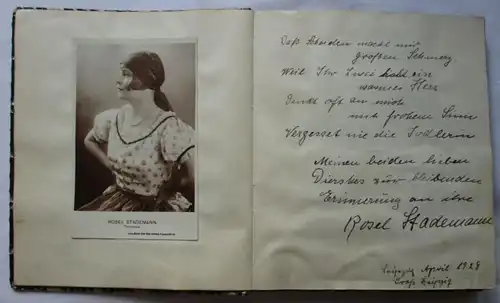 ROSEL STADEMANN
Das Scheiden macht mir
großen Schmerz
Weil Ihr Zwei habt ein
warmes Herz
Denkt oft an mich
mit frohem Sinn
Vergesset nie die Jodlerin
Meinen beiden lieben
Dierckes zur bleibenden
Erinnerung an ihre
Rosel Stademann
Leipzig April 1928